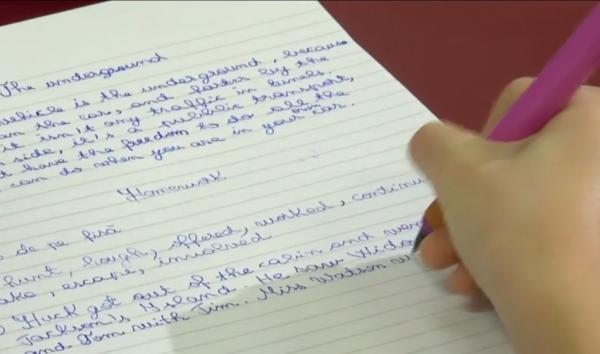 The underground
vehicle is the underground, because
than the car, and faster by the
it isn't any traffic in tunels.
side, it's a public transport,
have the freedom to do all the
can do when you are in your car.
Homework
de pe fișă
hunt, laugh, offered, worked, continue
escape, involved
Huck got out of the cabin and went
Jackson's Island. He saw
and Tom with Jim. Miss Watson